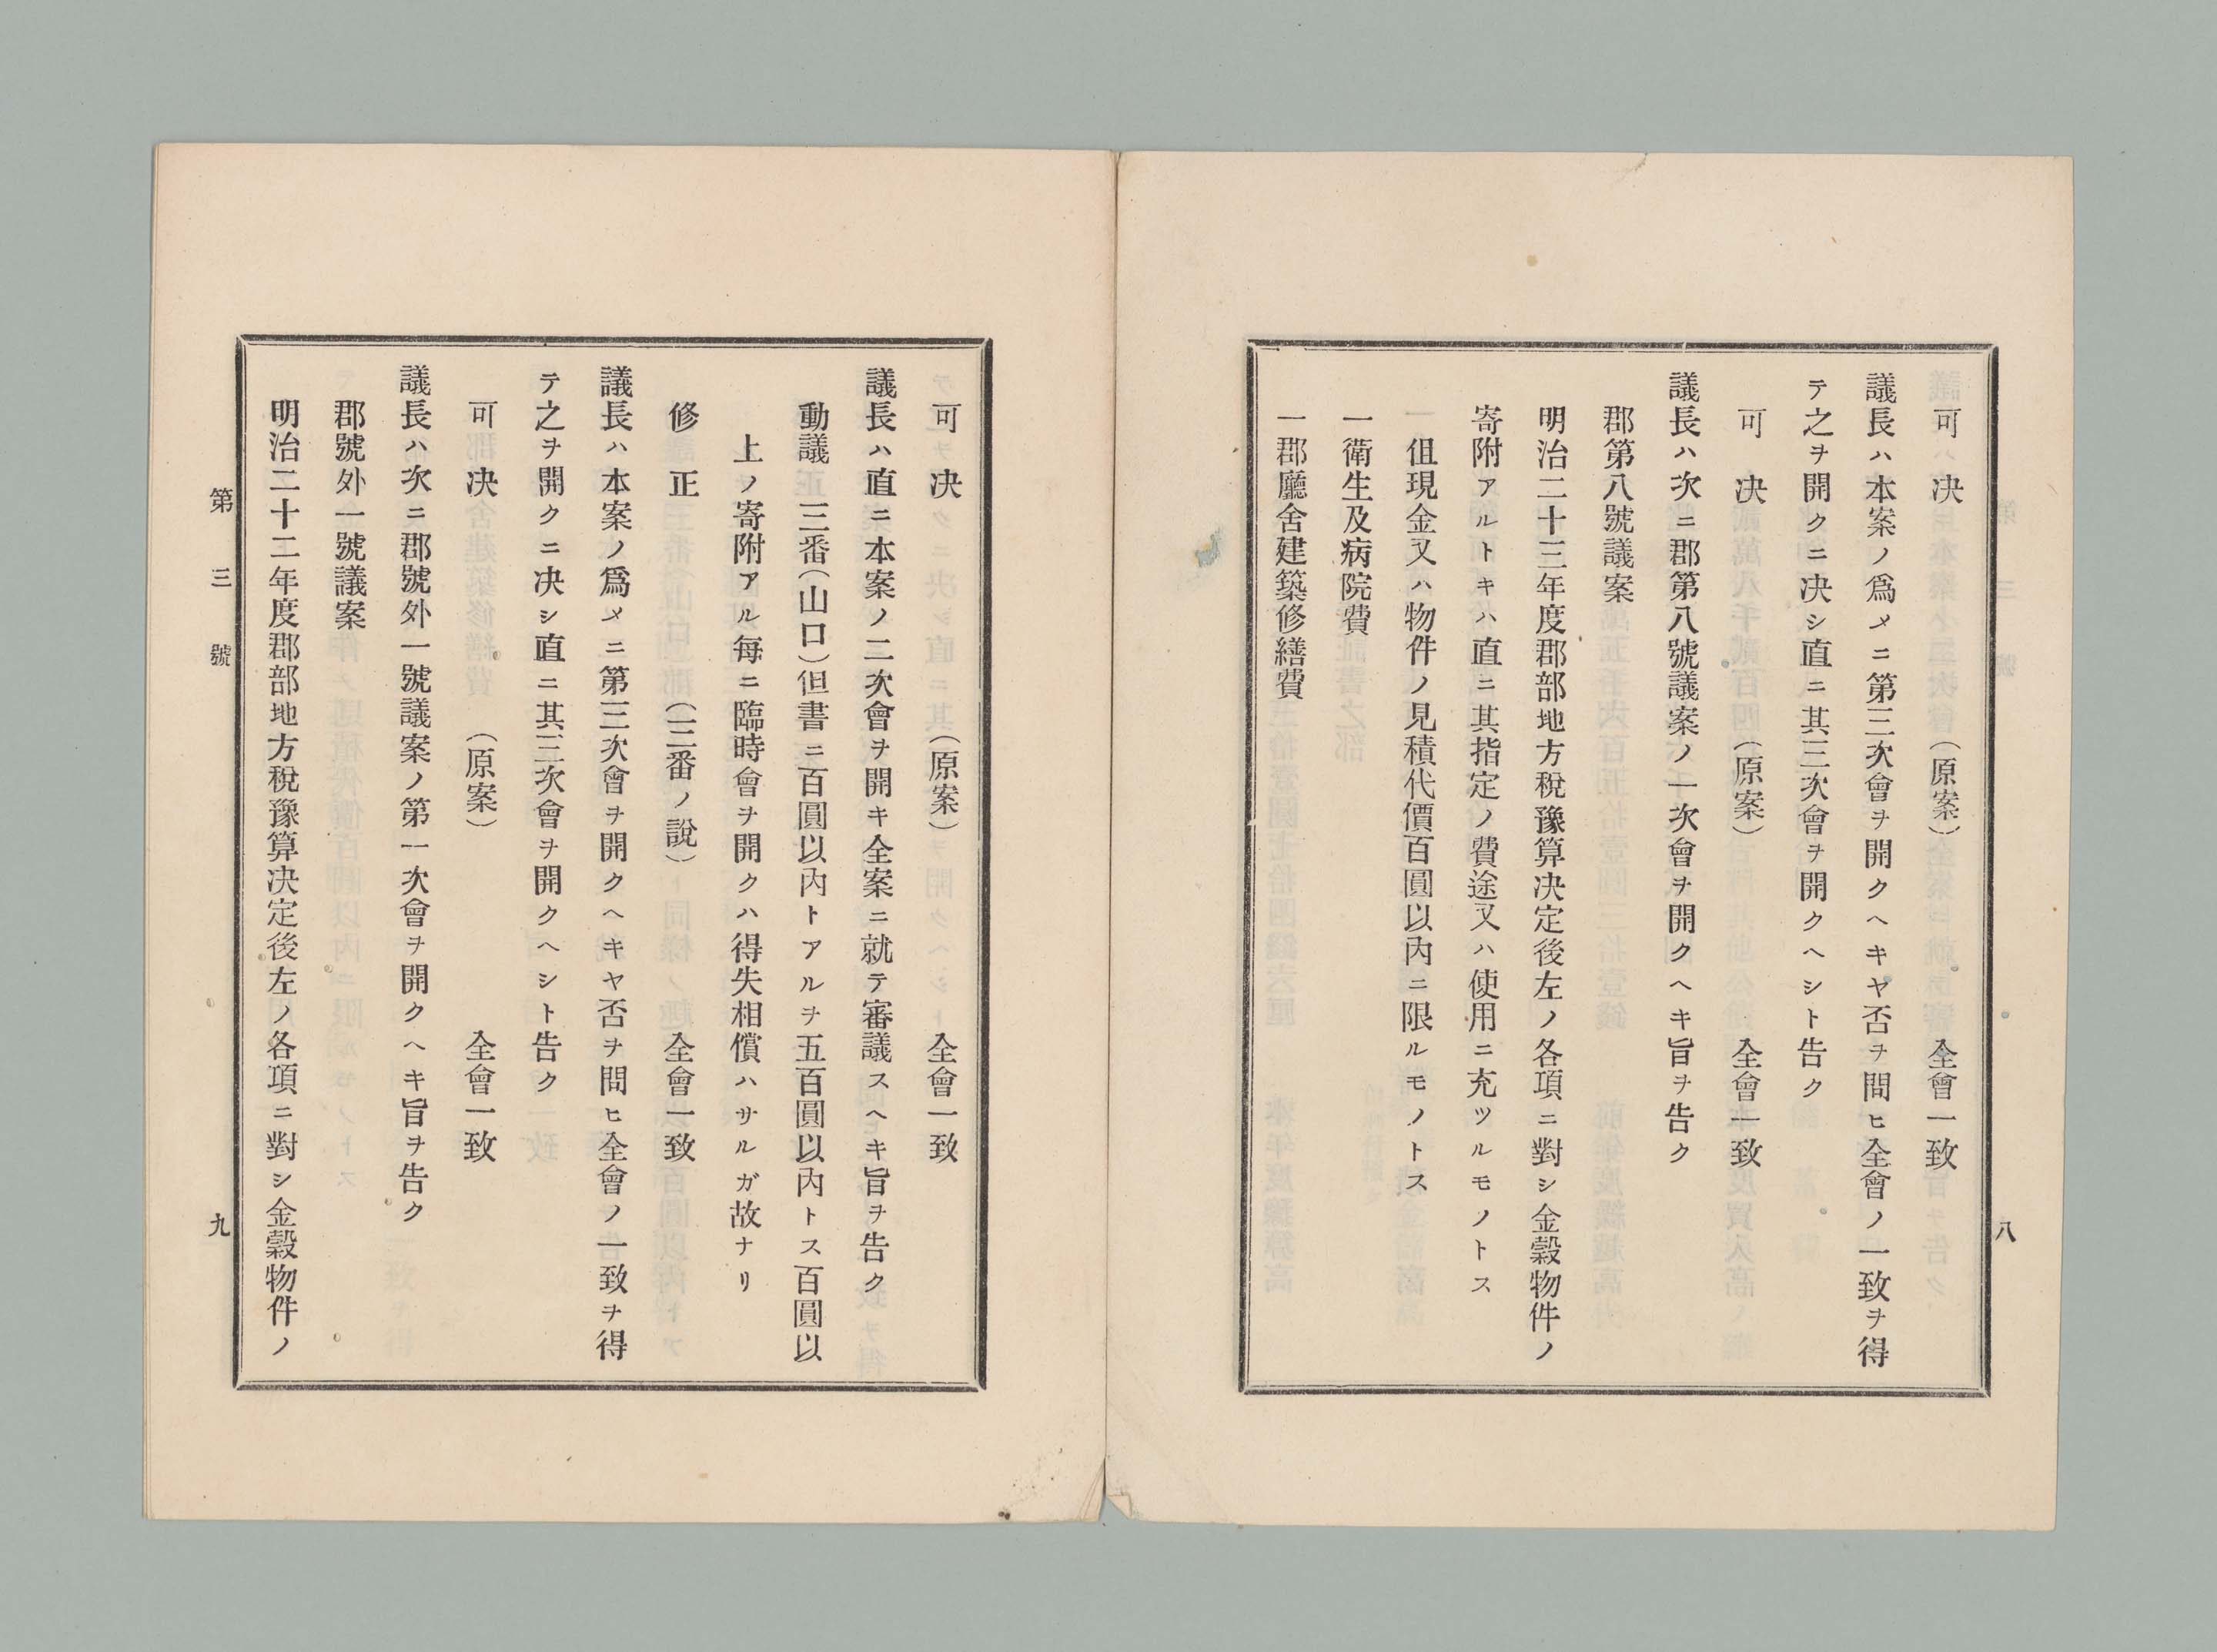 可決　（原案）　全會一致
議長ハ本案ノ爲メニ第三次會ヲ開クヘキヤ否ヲ問ヒ全會ノ一致ヲ得
テ之ヲ開クニ决シ直ニ其三次會ヲ開クヘシト告ク
可决　（原案）　全會一致
議長ハ次ニ郡第八號議案ノ一次會ヲ開クヘキ旨ヲ告ク
郡第八號議案
明治二十三年度郡部地方稅豫算决定後左ノ各項ニ對シ金穀物件ノ
寄附アルトキハ直ニ其指定ノ費途又ハ使用ニ充ツルモノトス
伹現金又ハ物件ノ見積代價百圓以內ニ限ルモノトス
一衛生及病院費
一郡廳舍建築修繕費
八
可决　（原案）　全會一致
議長ハ直ニ本案ノ二次會ヲ開キ全案ニ就テ審議スヘキ旨ヲ告ク
動議　三番（山口）但書ニ百圓以內トアルヲ五百圓以內トス百圓以
上ノ寄附アル每ニ臨時會ヲ開クハ得失相償ハサルガ故ナリ
修正　（三番ノ說）　全會一致
議長ハ本案ノ爲メニ第三次會ヲ開クヘキヤ否ヲ問ヒ全會ノ一致ヲ得
テ之ヲ開クニ决シ直ニ其三次會ヲ開クヘシト告ク
可决　（原案）　全會一致
議長ハ次ニ郡號外一號議案ノ第一次會ヲ開クヘキ旨ヲ告ク
郡號外一號議案
明治二十二年度郡部地方稅豫算决定後左ノ各項ニ對シ金穀物件ノ
第三號
九